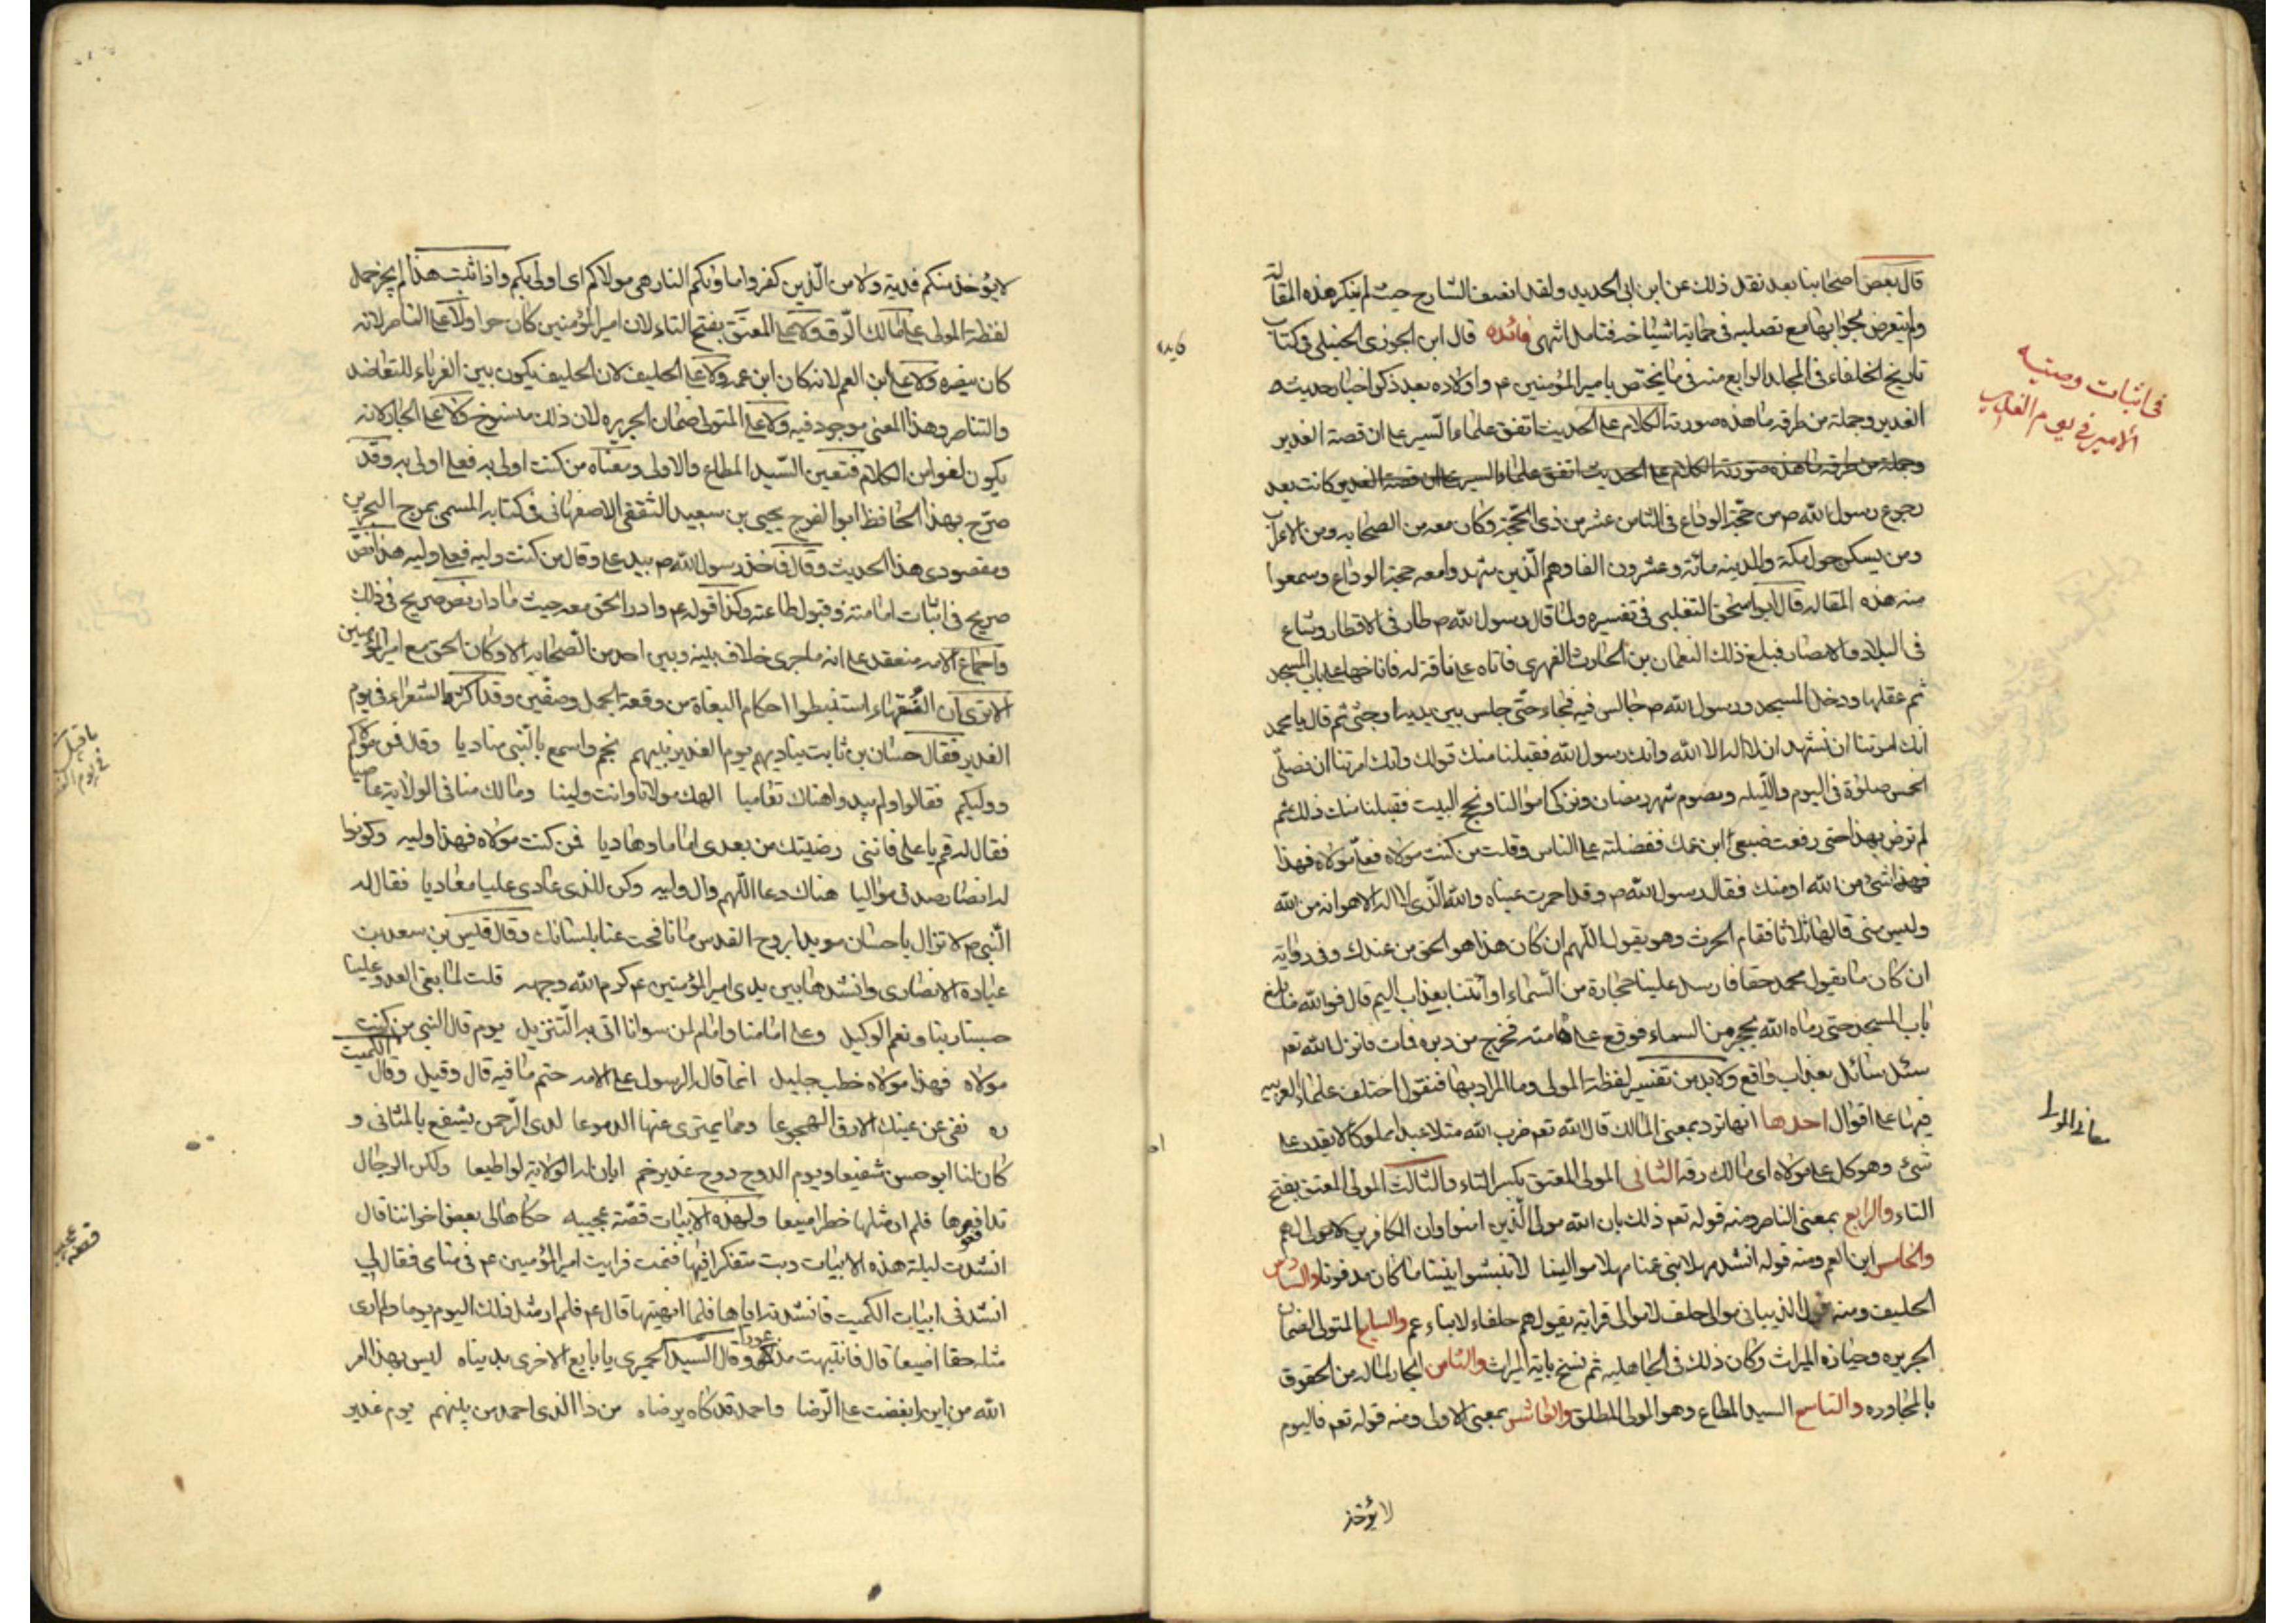 قال بعض اصحابنا بعد نقل ذلك عن ابن ابى الحديد ولقد انصف الشارح حيث لم ينكر هذه المقالة
ولم يتعرض لجوابها مع تصلبه فى حماية اشياخه فتامل انتهى فائده قال ابن الجوزى الحنبلى فى كتاب
تاريخ الخلفاء فى المجلد الرابع منه فى ما يختص بامير المؤمنين ع م واولاده بعد ذكر اخبار حديث
الغدير وجملة من طرقه ما هذه صورته الكلام على الحديث اتفق علماء السير على ان قصة الغدير
وجملة من طرقه ما هذه صورته الكلام على الحديث اتفق علماء السير على ان قصة الغدير كانت بعد
رجوع رسول الله ص من حجة الوداع فى الثامن عشر من ذى الحجة وكان معه من الصحابه ومن الاعراب
ومن يسكن حول مكة والمدينه مائة وعشرون الفا وهم الذين شهدوا معه حجة الوداع وسمعوا
منه هذه المقاله قال ابو اسحق الثعلبى فى تفسيره ولما قال رسول الله ص طار فى الاقطار وشاع
فى البلاد والامصار فبلغ ذلك النعمان بن الحارث الفهرى فاتاه على ناقة له فاناخها على باب المسجد
ثم عقلها ودخل المسجد ورسول الله ص جالس فيه فجاء حتى جلس بين يديه وجثى ثم قال يا محمد
انك امرتنا ان نشهد ان لا اله الا الله وانك رسول الله فقبلنا منك قولك وانك امرتنا ان نصلى
الخمس صلوة فى اليوم والليله ونصوم شهر رمضان ونزكى اموالنا ونحج البيت فقبلنا منك ذلك ثم
لم ترض بهذا حتى رفعت ضبعى ابن عمك ففضلته على الناس وقلت من كنت مولاه فعلى مولاه فهذا
فهذا شئ من الله او منك فقال رسول الله ص وقد احمرت عيناه والله الذى لا اله الا هو انه من الله
وليس منى قالها ثلاثا فقام الحرث وهو يقول اللهم ان كان هذا هو الحق من عندك وفى رواية
ان كان ما يقول محمد حقا فارسل علينا حجارة من السماء او ائتنا بعذاب اليم قال فوالله ما بلغ
باب المسجد حتى رماه الله بحجر من السماء فوقع على هامته فخرج من دبره فمات فانزل الله تعم
سئل سائل بعذاب واقع ولا بد من تفسير لفظة المولى وما المراد بها فنقول اختلف علماء العربيه
فيها على اقوال احدها انها ترد بمعنى المالك قال الله تعم ضرب الله مثلا عبدا مملوكا لا يقدر على
شئ وهو كل على مولاه اى مالك رقه الثانى المولى المعتق بكسر التاء والثالث المولى المعتق بفتح
التاء والرابع بمعنى الناصر ومنه قوله تعم ذلك بان الله مولى الذين امنوا وان الكافرين لا مولى لهم
والخامس ابن العم ومنه قوله انشد مهلا بنى عمنا مهلا موالينا لا تنبشوا بيننا ما كان مدفونا والسادس
الحليف ومنه قول الذبيانى موالى حلف لا موالى قرابة يقول هم حلفاء لا ابناء عم والسابع المتولى الضمان
الجريره وحيازه الميراث وكان ذلك فى الجاهليه ثم نسخ باية الميراث والثامن الجار لماله من الحقوق
بالمجاوره والتاسع السيد المطاع وهو المولى المطلق والعاشر بمعنى الاولى ومنه قوله تعم فاليوم
لا يؤخذ
فى اثبات وصيه
الامير فى يوم الغدير
معانى المولا
فايده
لا يؤخذ منكم فدية ولا من الذين كفروا ماويكم النار هى مولاكم اى اولى بكم واذا ثبت هذا لم يجز حمل
لفظة المولى على مالك الرق ولا على المعتق بفتح التاء لان امير المؤمنين كان حرا ولا على الناصر لانه
كان ينصره ولا على ابن العم لانه كان ابن عمه ولا على الحليف لان الحليف يكون بين الغرباء للتعاضد
والتناصر وهذا المعنى موجود فيه ولا على المتولى ضمان الجريره لان ذلك منسوخ ولا على الجار لانه
يكون لغوا من الكلام فتعين السيد المطاع والاولى ومعناه من كنت اولى به فعلى اولى به وقد
صرح بهذا الحافظ ابو الفرج يحيى بن سعيد الثقفى الاصفهانى فى كتابه المسمى بمرج البحرين
ومقصودى هذا الحديث وقال فاخذ رسول الله ص بيد على وقال من كنت وليه فعلى وليه هذا نص
صريح فى اثبات امامته وقبول طاعته وكذا قوله ع م وادر الحق معه حيث ما دار نص صريح فى ذلك
واجماع الامه منعقد على انه ما جرى خلاف بينه وبين احد من الصحابه الا وكان الحق مع امير المؤمنين
الا ترى ان الفقهاء استنبطوا احكام البغاة من وقعة الجمل وصفين وقد اكثر الشعراء فى يوم
الغدير فقال حسان بن ثابت يناديهم يوم الغدير نبيهم بخم واسمع بالنبى مناديا وقد فمن مولاكم
ووليكم فقالوا ولم يبدوا هناك تعاميا الهك مولانا وانت ولينا ومالك منا فى الولاية عاصيا
فقال له قم يا على فاننى رضيتك من بعدى اماما وهاديا فمن كنت مولاه فهذا وليه وكونوا
له انصار صدق مواليا هناك دعا اللهم وال وليه وكن للذى عادى عليا معاديا فقال له
النبى ص لا تزال يا حسان مويدا بروح القدس ما نافحت عنا بلسانك وقال قيس بن سعد بن
عباده الانصارى وانشدها بين يدى امير المؤمنين ع م كرم الله وجهه قلت لما بغى العدو علينا
حسبنا ربنا ونعم الوكيل وعلى امامنا وامام لمن سوانا اتى به التنزيل يوم قال النبى من كنت
مولاه فهذا مولاه خطب جليل انما قال الرسول على الامه حتم ما فيه قال وقيل وقال الكميت
ره نفى عن عينك الارق الهجوعا وهما يمترى عنها الدموعا لدى الرحمن يشفع بالمثانى و
كان لنا ابو حسن شفيعا ويوم الدوح دوح غدير خم ابان له الولاية لو اطيعا ولكن الرجال
تدافعوها فلم ار مثلها خطرا منيعا ولهذه الابيات قصة عجيبه حكاها لى بعض اخواننا قال
انشدت ليلة هذه الابيات وبت متفكرا فيها فنمت فرايت امير المؤمنين ع م فى منامى فقال لى
انشدنى ابيات الكميت فانشدته اياها فلما انهيتها قال ع م فلم ار مثل ذلك اليوم يوما ولم ارى
مثله حقا اضيعا قال فانتبهت مذعورا وقال السيد الحميرى يا بايع الاخرى بدنياه ليس بهذا امر
الله من اين ابغضت على الرضا واحمد قد كان يرضاه من ذا الذى احمد من بينهم يوم غدير
ما قيل
فى يوم الغدير
قصه عجيبه